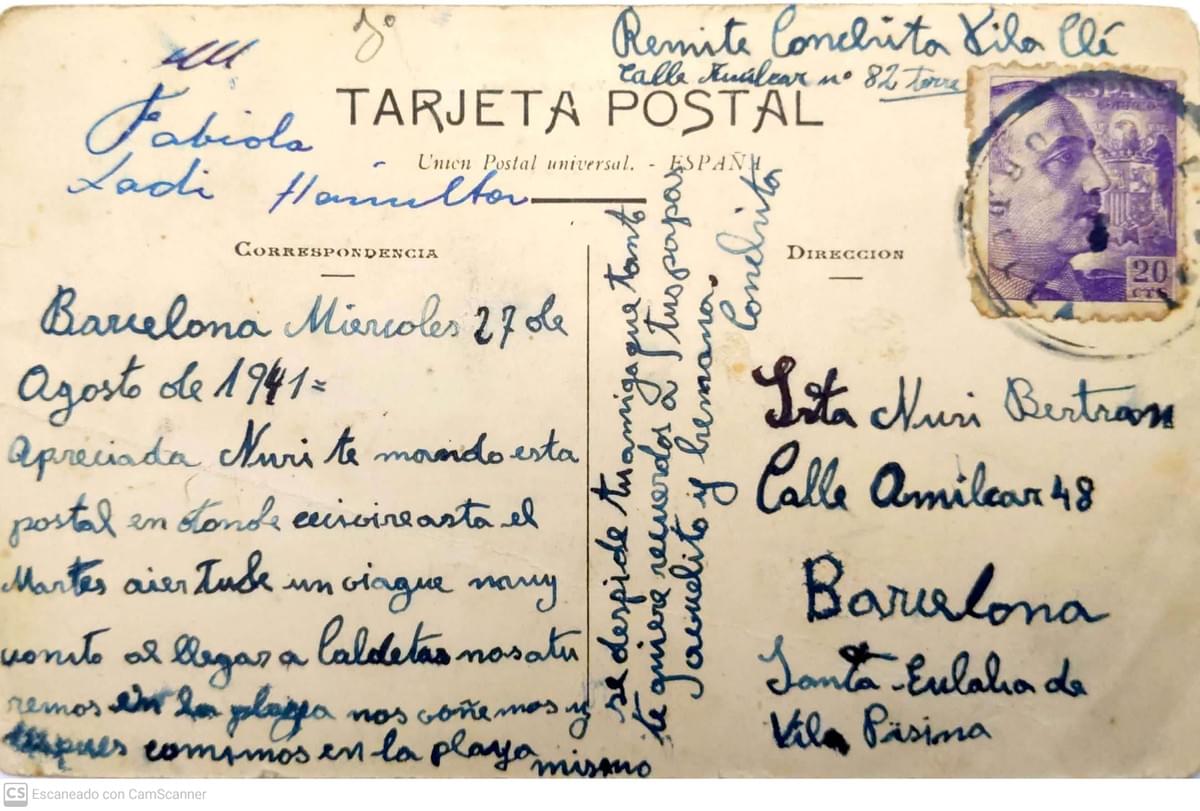 3º
Remite Conchita Vila Clé
Calle Amilcar nº 82 torre
Fabiola
Ladi Hamilton
TARJETA POSTAL
Union Postal universal. - ESPAÑA
ESPAÑA
CORREOS
20
CTS
CORRESPONDENCIA
DIRECCION
Barcelona Miercoles 27 de
Agosto de 1941=
Apreciada Nuri te mando esta
postal en donde el
Martes aier tube un viague muy
vonito al llegar a Caldetas nosatu
remos en la playa nos vañemos y
despues comimos en la playa
mismo
se despide tu amiga que tanto
te quiere recuerdos a tus papas
Jaumelito y hermana.
Conchita
Srta Nuri Bertran
Calle Amilcar 48
Barcelona
Santa Eulalia de
Vila Pisina
CS Escaneado con CamScanner